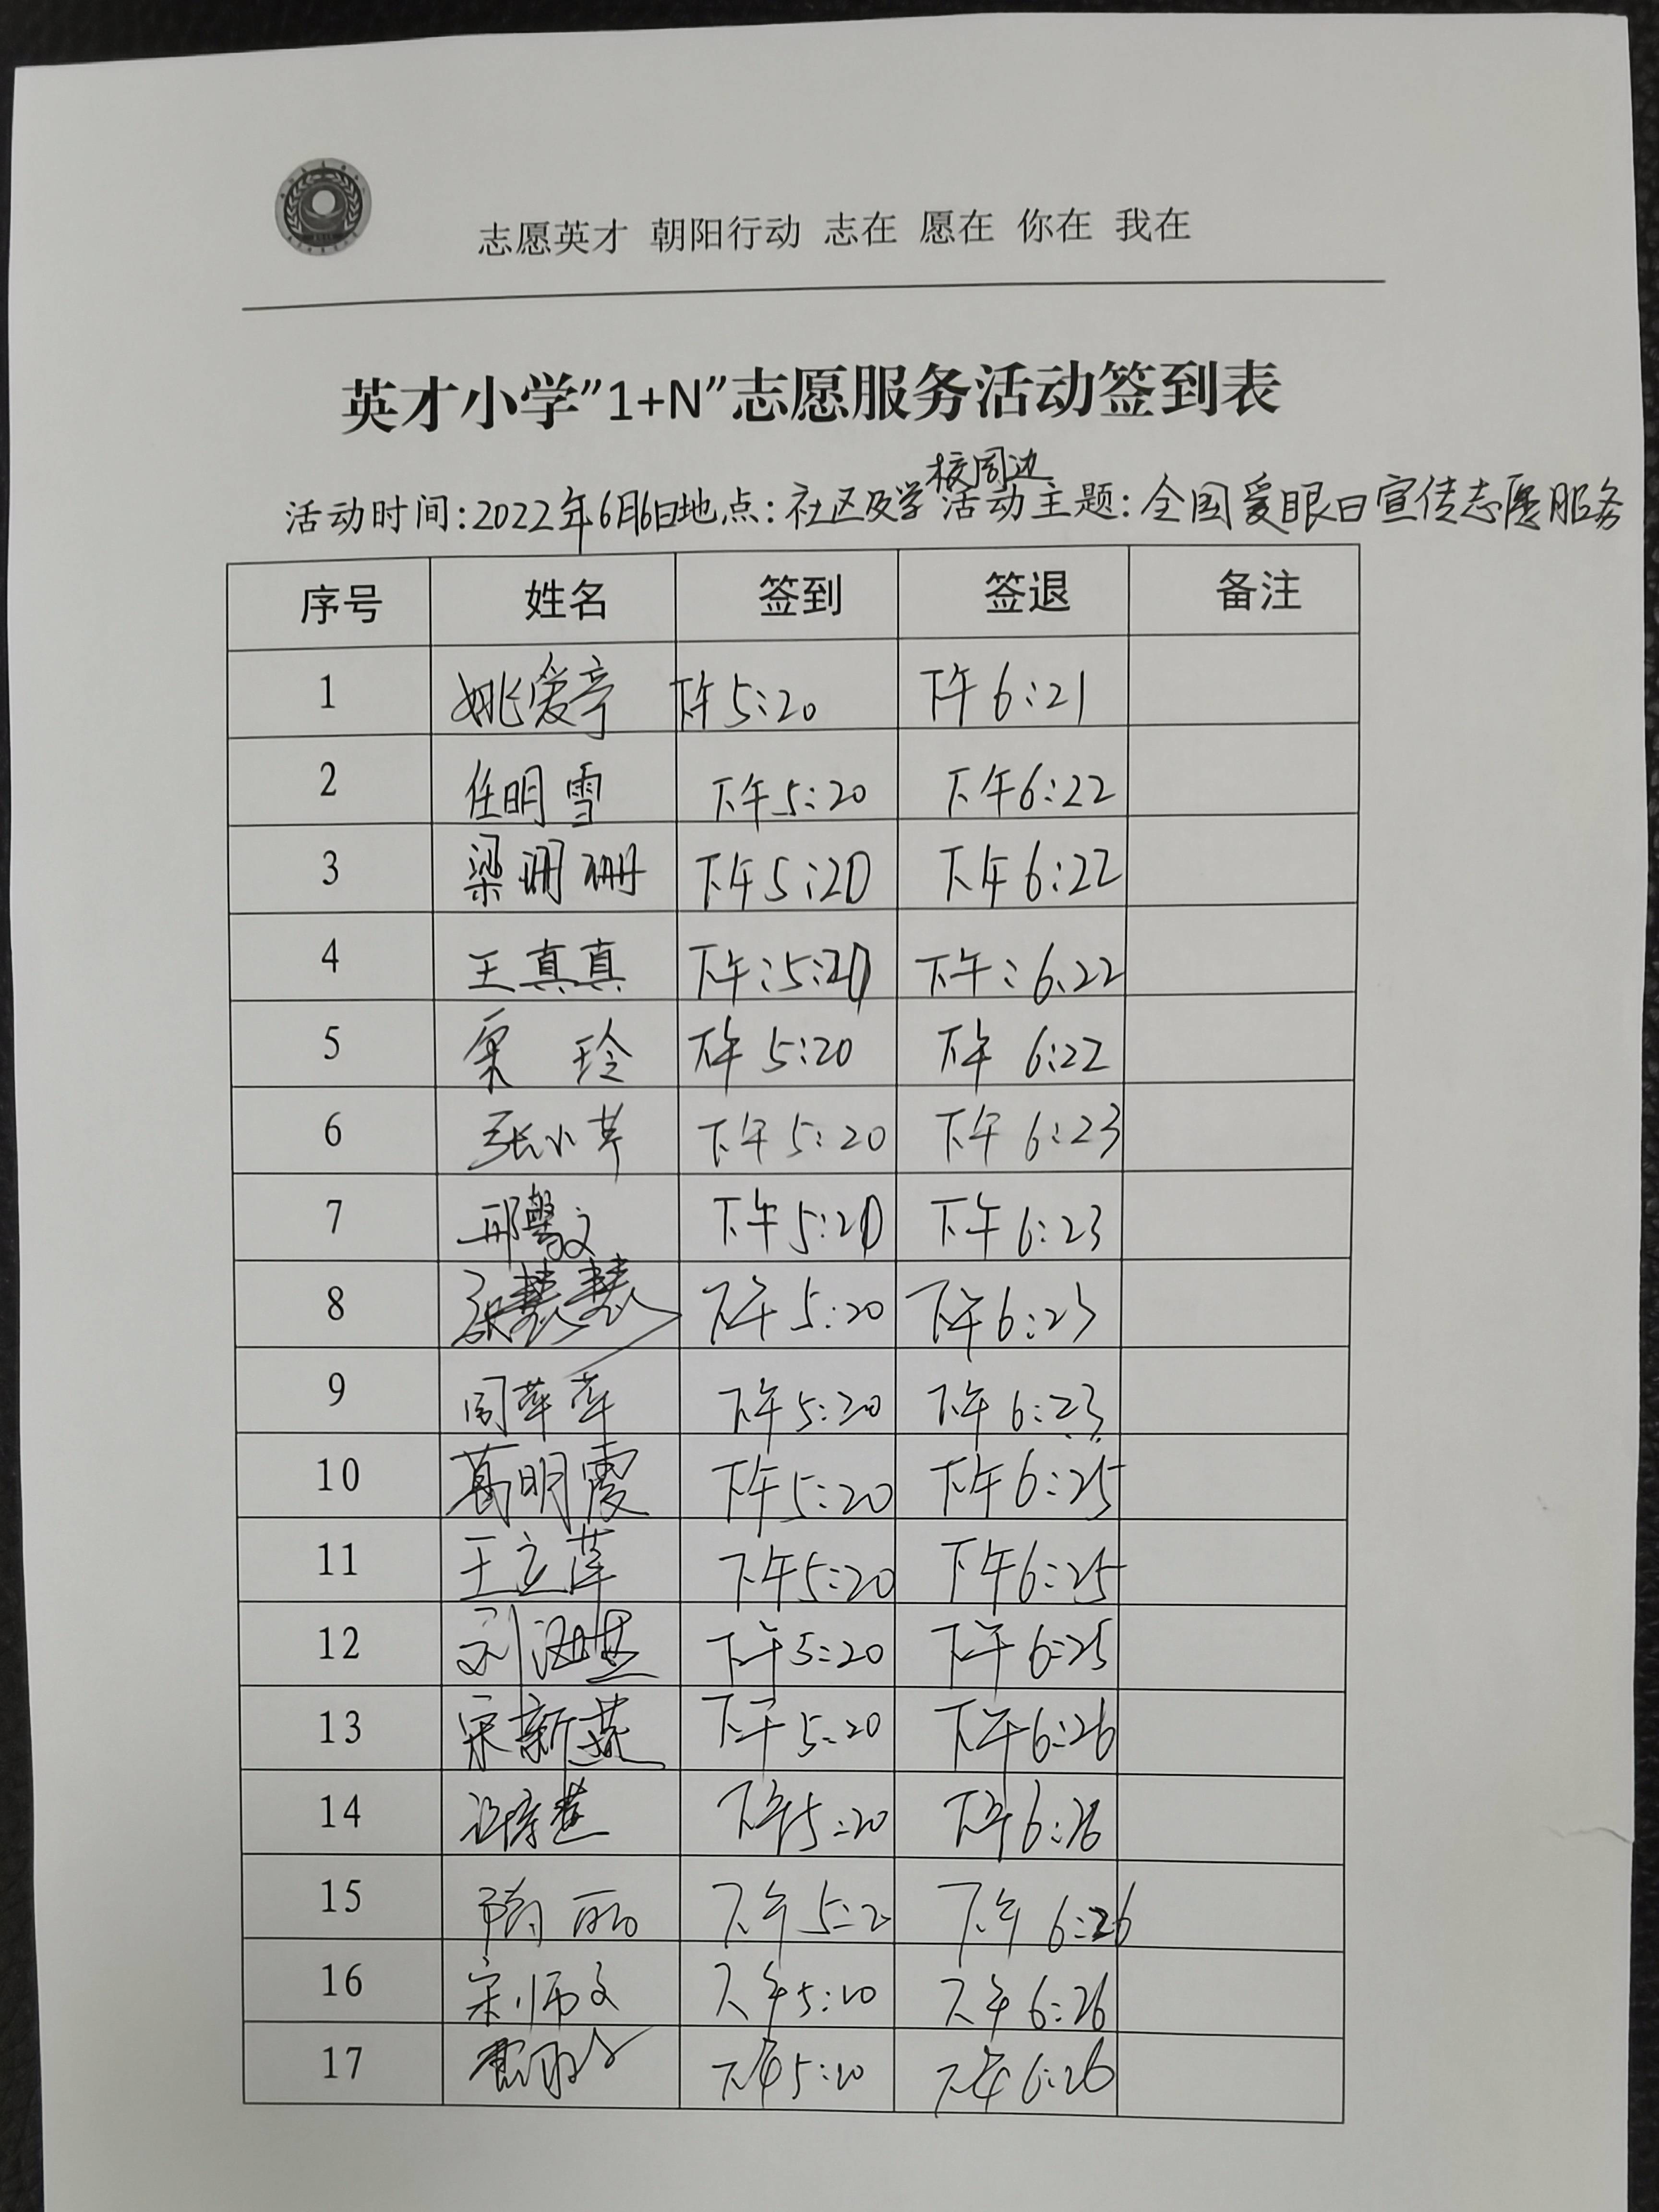 志愿英才 朝阳行动 志在 愿在 你在 我在
英才小学”1+N”志愿服务活动签到表
校周边
活动时间:2022年6月6日地点:社区及学 活动主题:全国爱眼日宣传志愿服务
序号 姓名 签到 签退 备注
1 姚爱亭 下午5:20 下午6:21
2 任明雪 下午5:20 下午6:22
3 梁珊珊 下午5:20 下午6:22
4 王真真 下午:5:20 下午:6.22
5 栗玲 下午5:20 下午6:22
6 张小芹 下午5:20 下午6:23
7 邢馨文 下午5:20 下午6:23
8 张慧慧 下午5:20 下午6:23
9 闫萍萍 下午5:20 下午6:23
10 葛明霞 下午5:20 下午6:25
11 王立萍 下午5:20 下午6:25
12 下午5:20 下午6:25
13 宋新燕 下午5:20 下午6:26
14 下午5:20 下午6:26
15 隋丽 下午5:2 下午6:26
16 宋师文 下午5:20 下午6:26
17 下午5:20 下午6:26